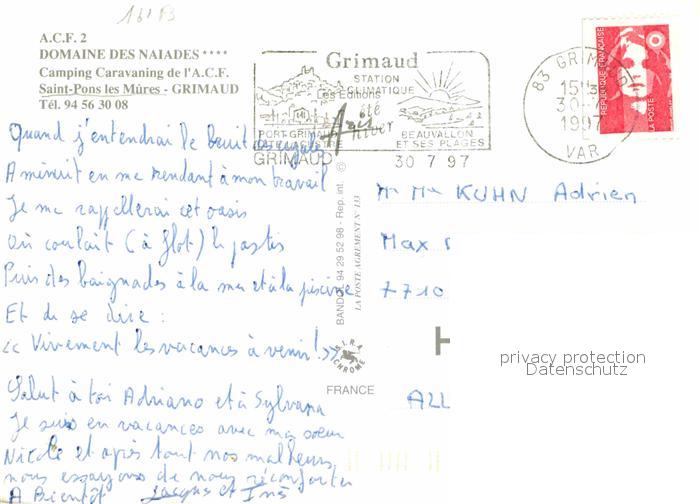 A.C.F. 2
DOMAINE DES NAIADES ****
Camping Caravaning de l'A.C.F.
Saint-Pons les Mûres - GRIMAUD
Tél. 94 56 30 08
Quand j'entendrai le bruit
A minuit en me rendant à mon travail
Je me rappellerai cet oasis
Où coulait (à flot) le pastis
Puis des baignades à la mer et à la piscine
Et de se dire :
<< Vivement les vacances à venir ! >>
Salut à toi Adriano et à Sylvana
Je suis en vacances avec ma soeur
Nicole et après tout nos malheurs
nous essayons de nous réconforter
A Bientôt Jacques et Inès
Grimaud
STATION
CLIMATIQUE
Les Editions
été
hiver
PORT GRIMAUD
CITE LACUSTRE
BEAUVALLON
ET SES PLAGES
GRIMAUD
30 7 97
83 GRIMAUD
30-7
1997
VAR
REPUBLIQUE FRANÇAISE
LA POSTE
BANDOL 94 29 52 98 - Rep. int. ©
LA POSTE AGREMENT N° 133
S.I.R.A.
CHROME
FRANCE
Mr Mme KUHN Adrien
Max
7710
H
ALL
privacy protection
Datenschutz